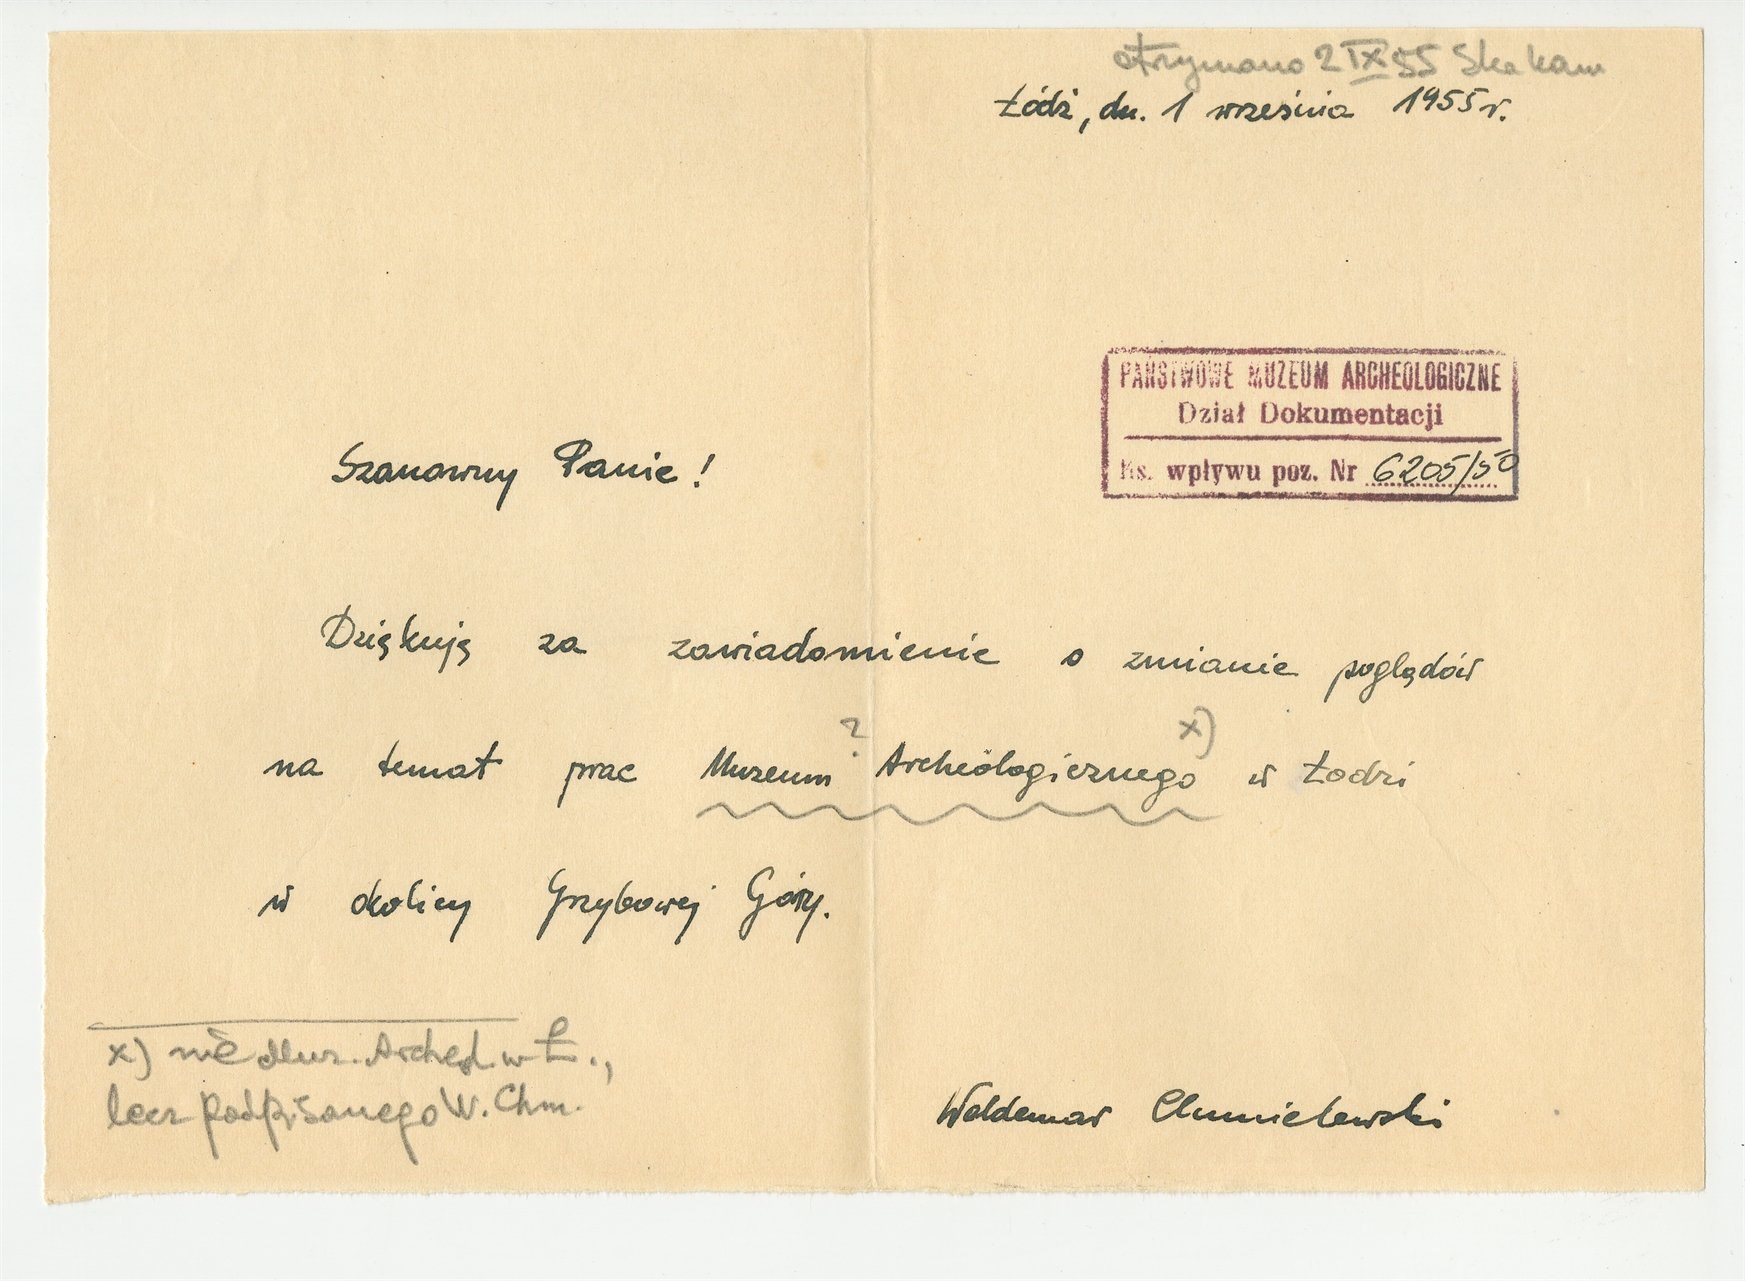 otrzymano 2 IX 55
Łódź, dn. 1 września 1955 r.
PAŃSTWOWE MUZEUM ARCHEOLOGICZNE
Dział Dokumentacji
Ks. wpływu poz. Nr 6205/50
Szanowny Panie!
Dziękuję za zawiadomienie o zmianie poglądów
? x)
na temat prac Muzeum Archeologicznego w Łodzi
w okolicy Grzybowej Góry.
x) nie Muz. Archeol. w Ł.,
lecz podpisanego W. Chm.
Waldemar Chmielewski